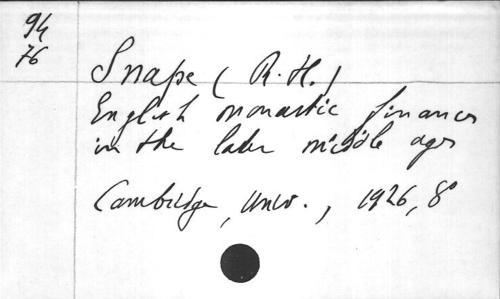 94
76
Snape (R.H.)
English monastic finances
in the later middle ages
Cambridge, Univ., 1926, 8°